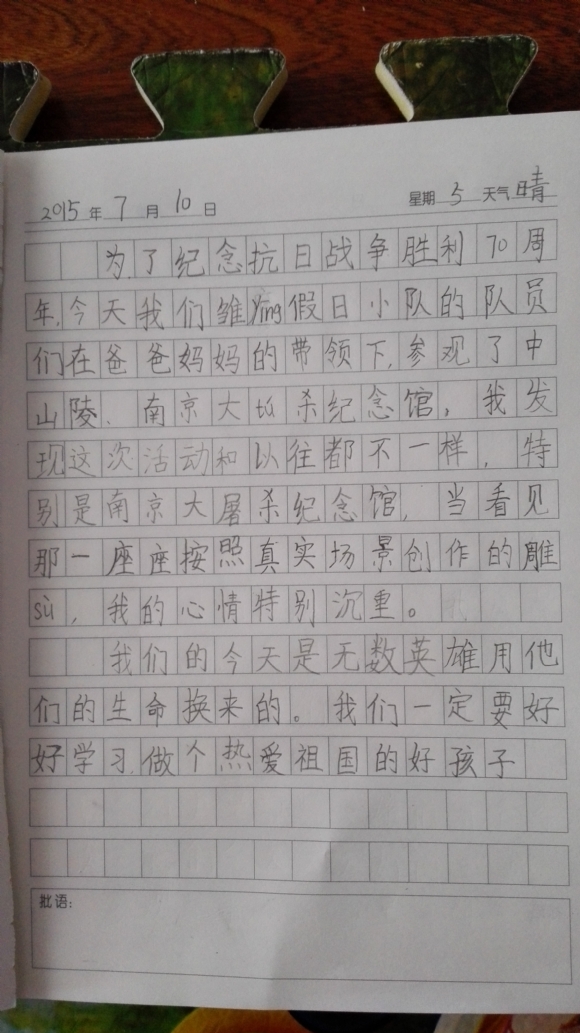 2015年7月10日 星期5 天气晴
为了纪念抗日战争胜利70周
年,今天我们雏ying假日小队的队员
们在爸爸妈妈的带领下,参观了中
山陵、南京大tú杀纪念馆,我发
现这次活动和以往都不一样,特
别是南京大屠杀纪念馆,当看见
那一座座按照真实场景创作的雕
sù,我的心情特别沉重。
我们的今天是无数英雄用他
们的生命换来的。我们一定要好
好学习,做个热爱祖国的好孩子
批语: